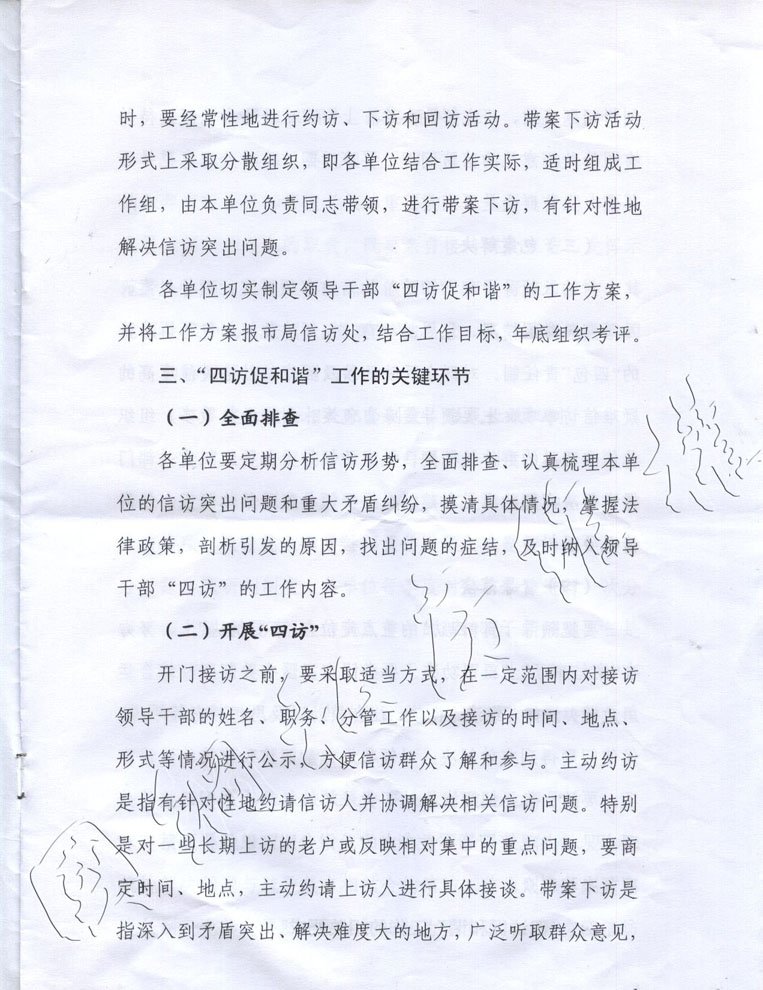 时，要经常性地进行约访、下访和回访活动。带案下访活动
形式上采取分散组织，即各单位结合工作实际，适时组成工
作组，由本单位负责同志带领，进行带案下访，有针对性地
解决信访突出问题。
各单位切实制定领导干部“四访促和谐”的工作方案，
并将工作方案报市局信访处，结合工作目标，年底组织考评。
三、“四访促和谐”工作的关键环节
（一）全面排查
各单位要定期分析信访形势，全面排查、认真梳理本单
位的信访突出问题和重大矛盾纠纷，摸清具体情况，掌握法
律政策，剖析引发的原因，找出问题的症结，及时纳入领导
干部“四访”的工作内容。
（二）开展“四访”
开门接访之前，要采取适当方式，在一定范围内对接访
领导干部的姓名、职务、分管工作以及接访的时间、地点、
形式等情况进行公示，方便信访群众了解和参与。主动约访
是指有针对性地约请信访人并协调解决相关信访问题。特别
是对一些长期上访的老户或反映相对集中的重点问题，要商
定时间、地点，主动约请上访人进行具体接谈。带案下访是
指深入到矛盾突出、解决难度大的地方，广泛听取群众意见，